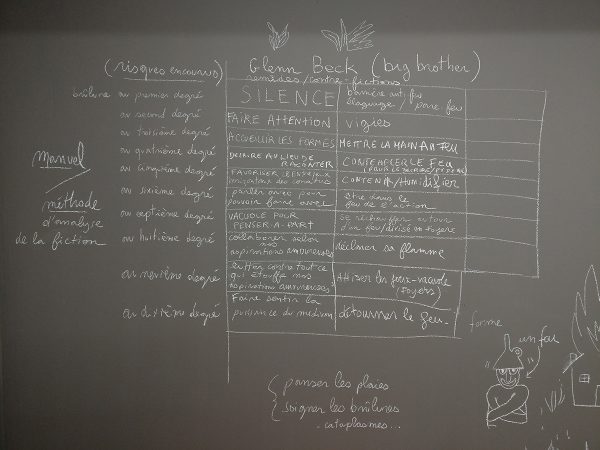 (risques encourus) Glenn Beck (big brother)
remèdes/contre-fictions
brûlure au premier degré SILENCE barrière anti feu
élaguage / pare feu
au second degré FAIRE ATTENTION vigies
au troisième degré ACCUEILLIR LES FORMES METTRE LA MAIN AU FEU
au quatrième degré DÉCRIRE AU LIEU DE RACONTER CONTEMPLER LE FEU
au cinquième degré FAVORISER CONTENIR/HUMIDIFIER
au sixième degré parler avec pour pouvoir faire avec être dans le feu de l'action
au septième degré VACUOLE POUR PENSER A-PART se réchauffer autour d'un feu/divisé en foyers
au huitième degré collaborer selon nos aspirations amoureuses déclarer sa flamme
au neuvième degré lutter contre tout ce qui étouffe nos aspirations amoureuses attiser les feux-vacuole (foyers)
au dixième degré Faire sentir la puissance du medium détourner le feu.
manuel
méthode
d'analyse
de la fiction
forme
un fou
panser les plaies
soigner les brûlures
. cataplasmes...